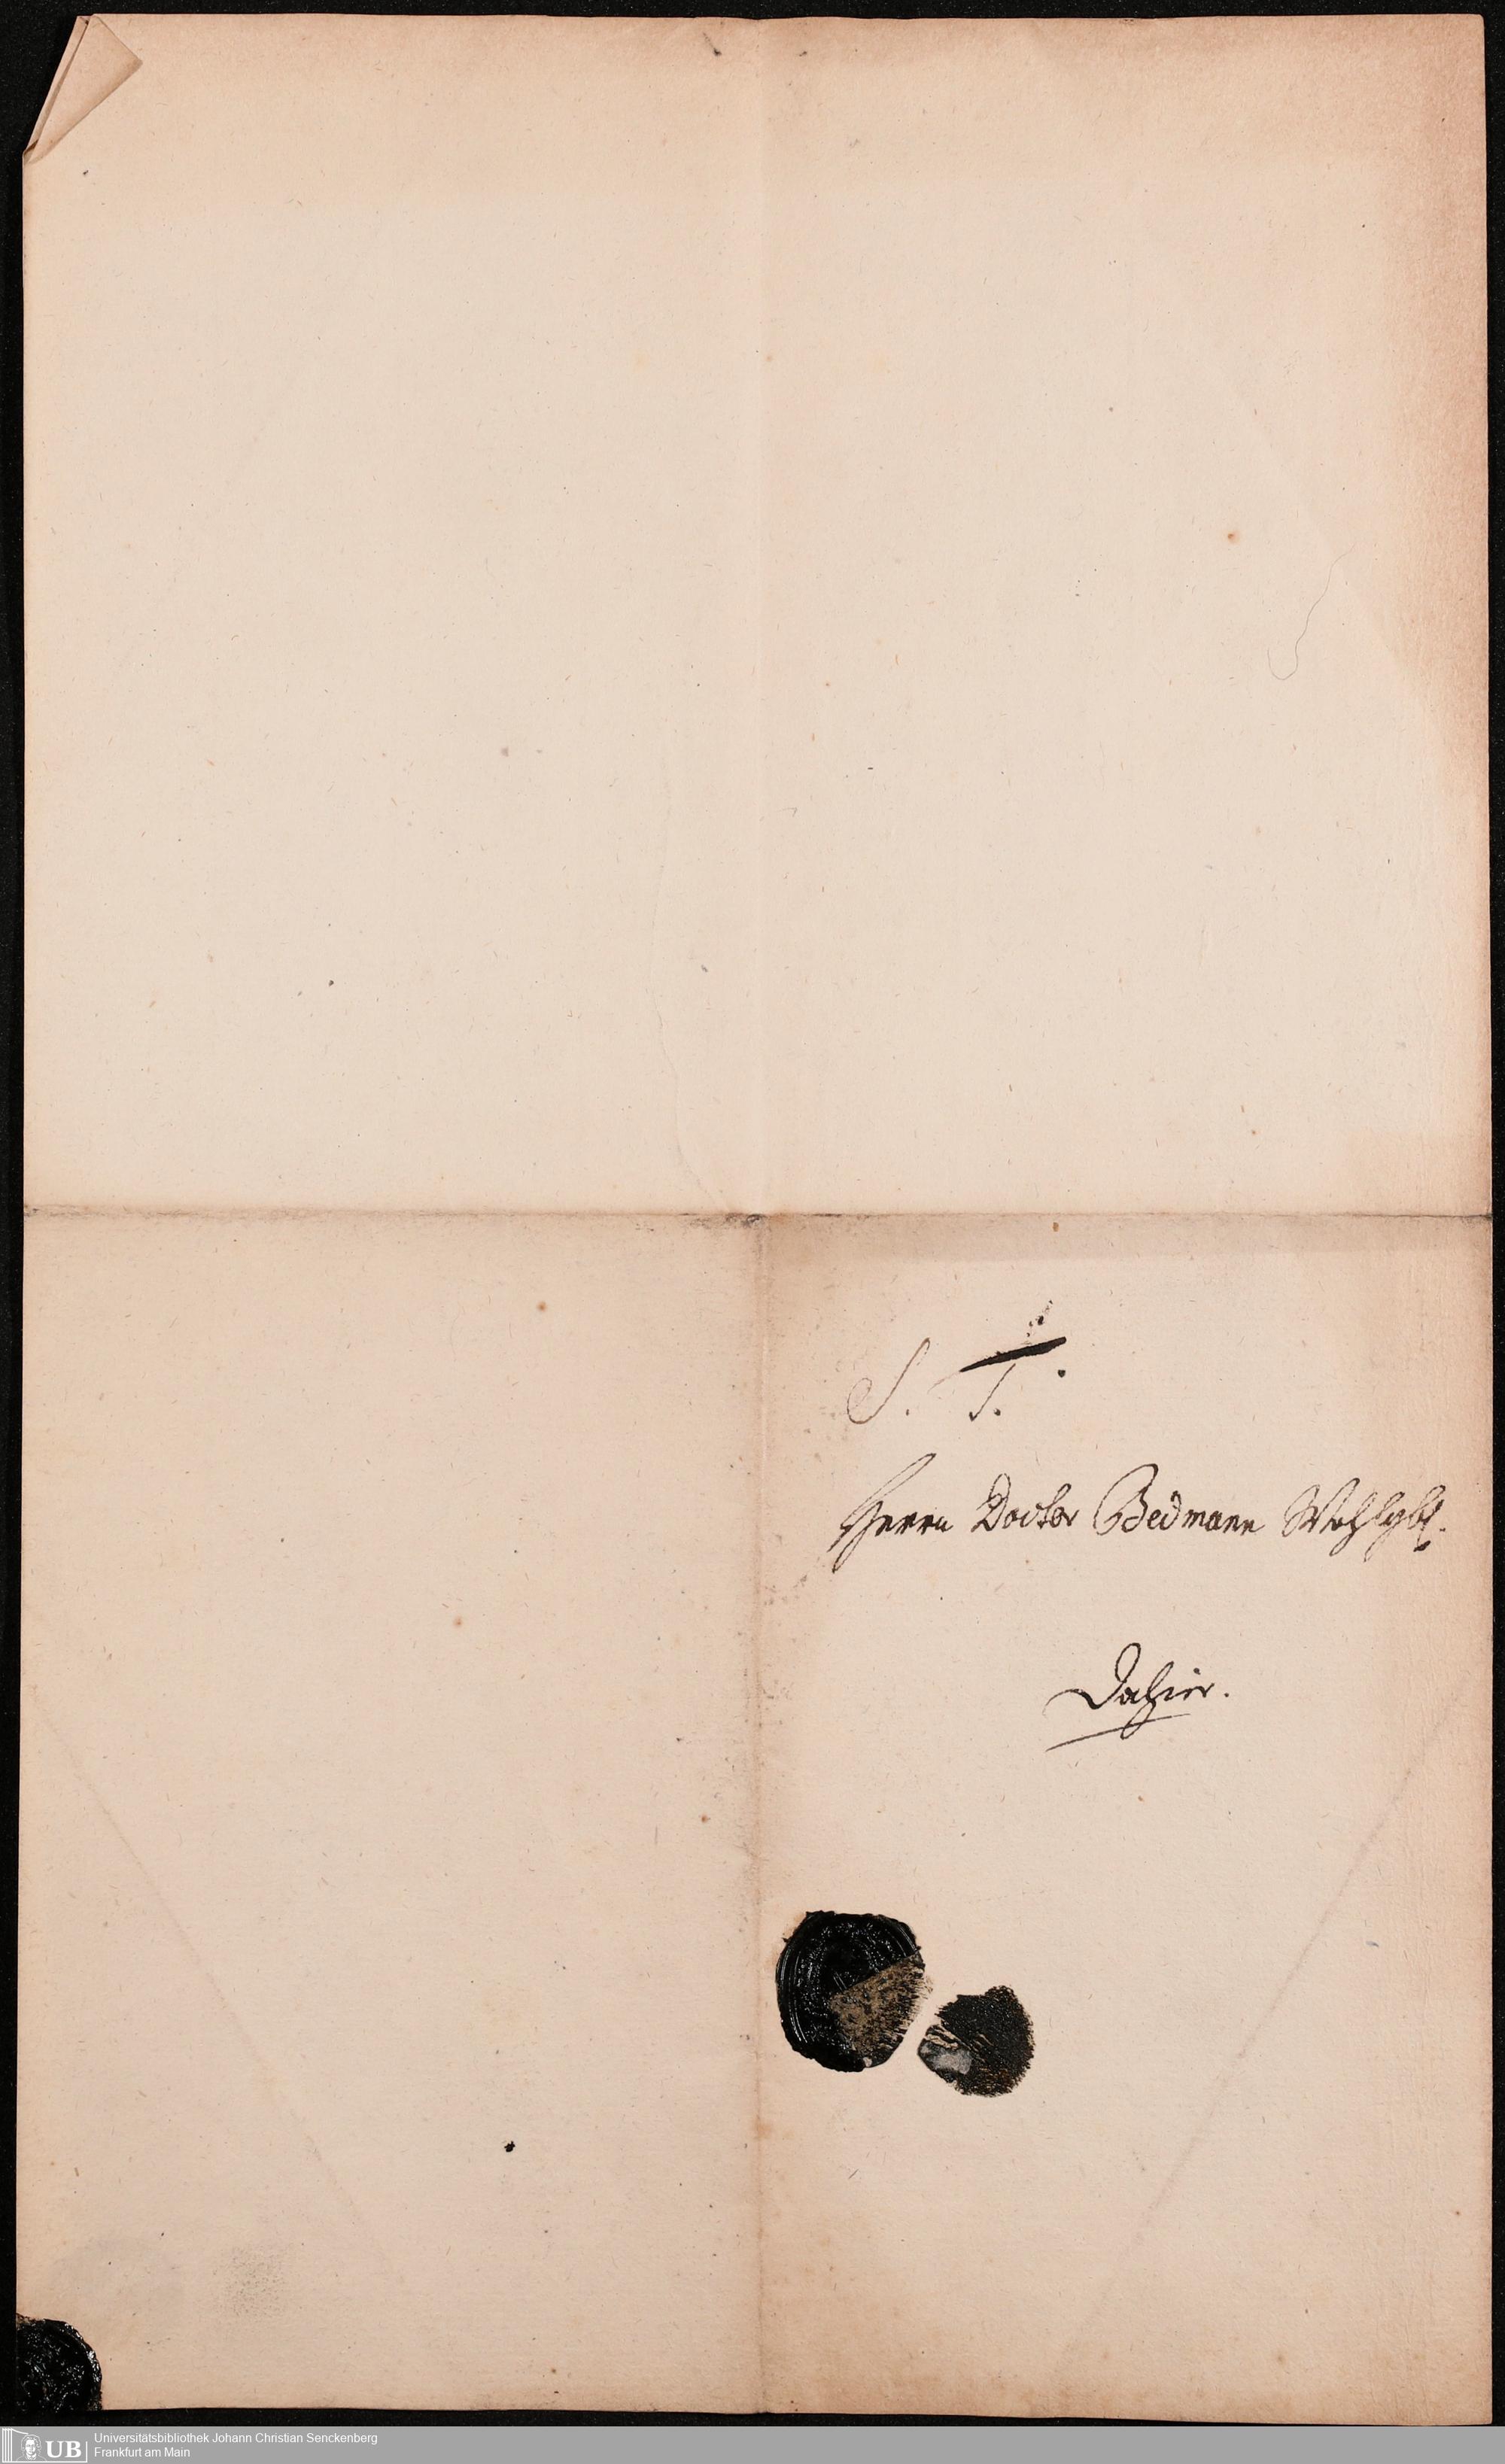 S. T.
Herrn Doctor Bedmann Wohlgb.
Dahier.
UB
Universitätsbibliothek Johann Christian Senckenberg
Frankfurt am Main